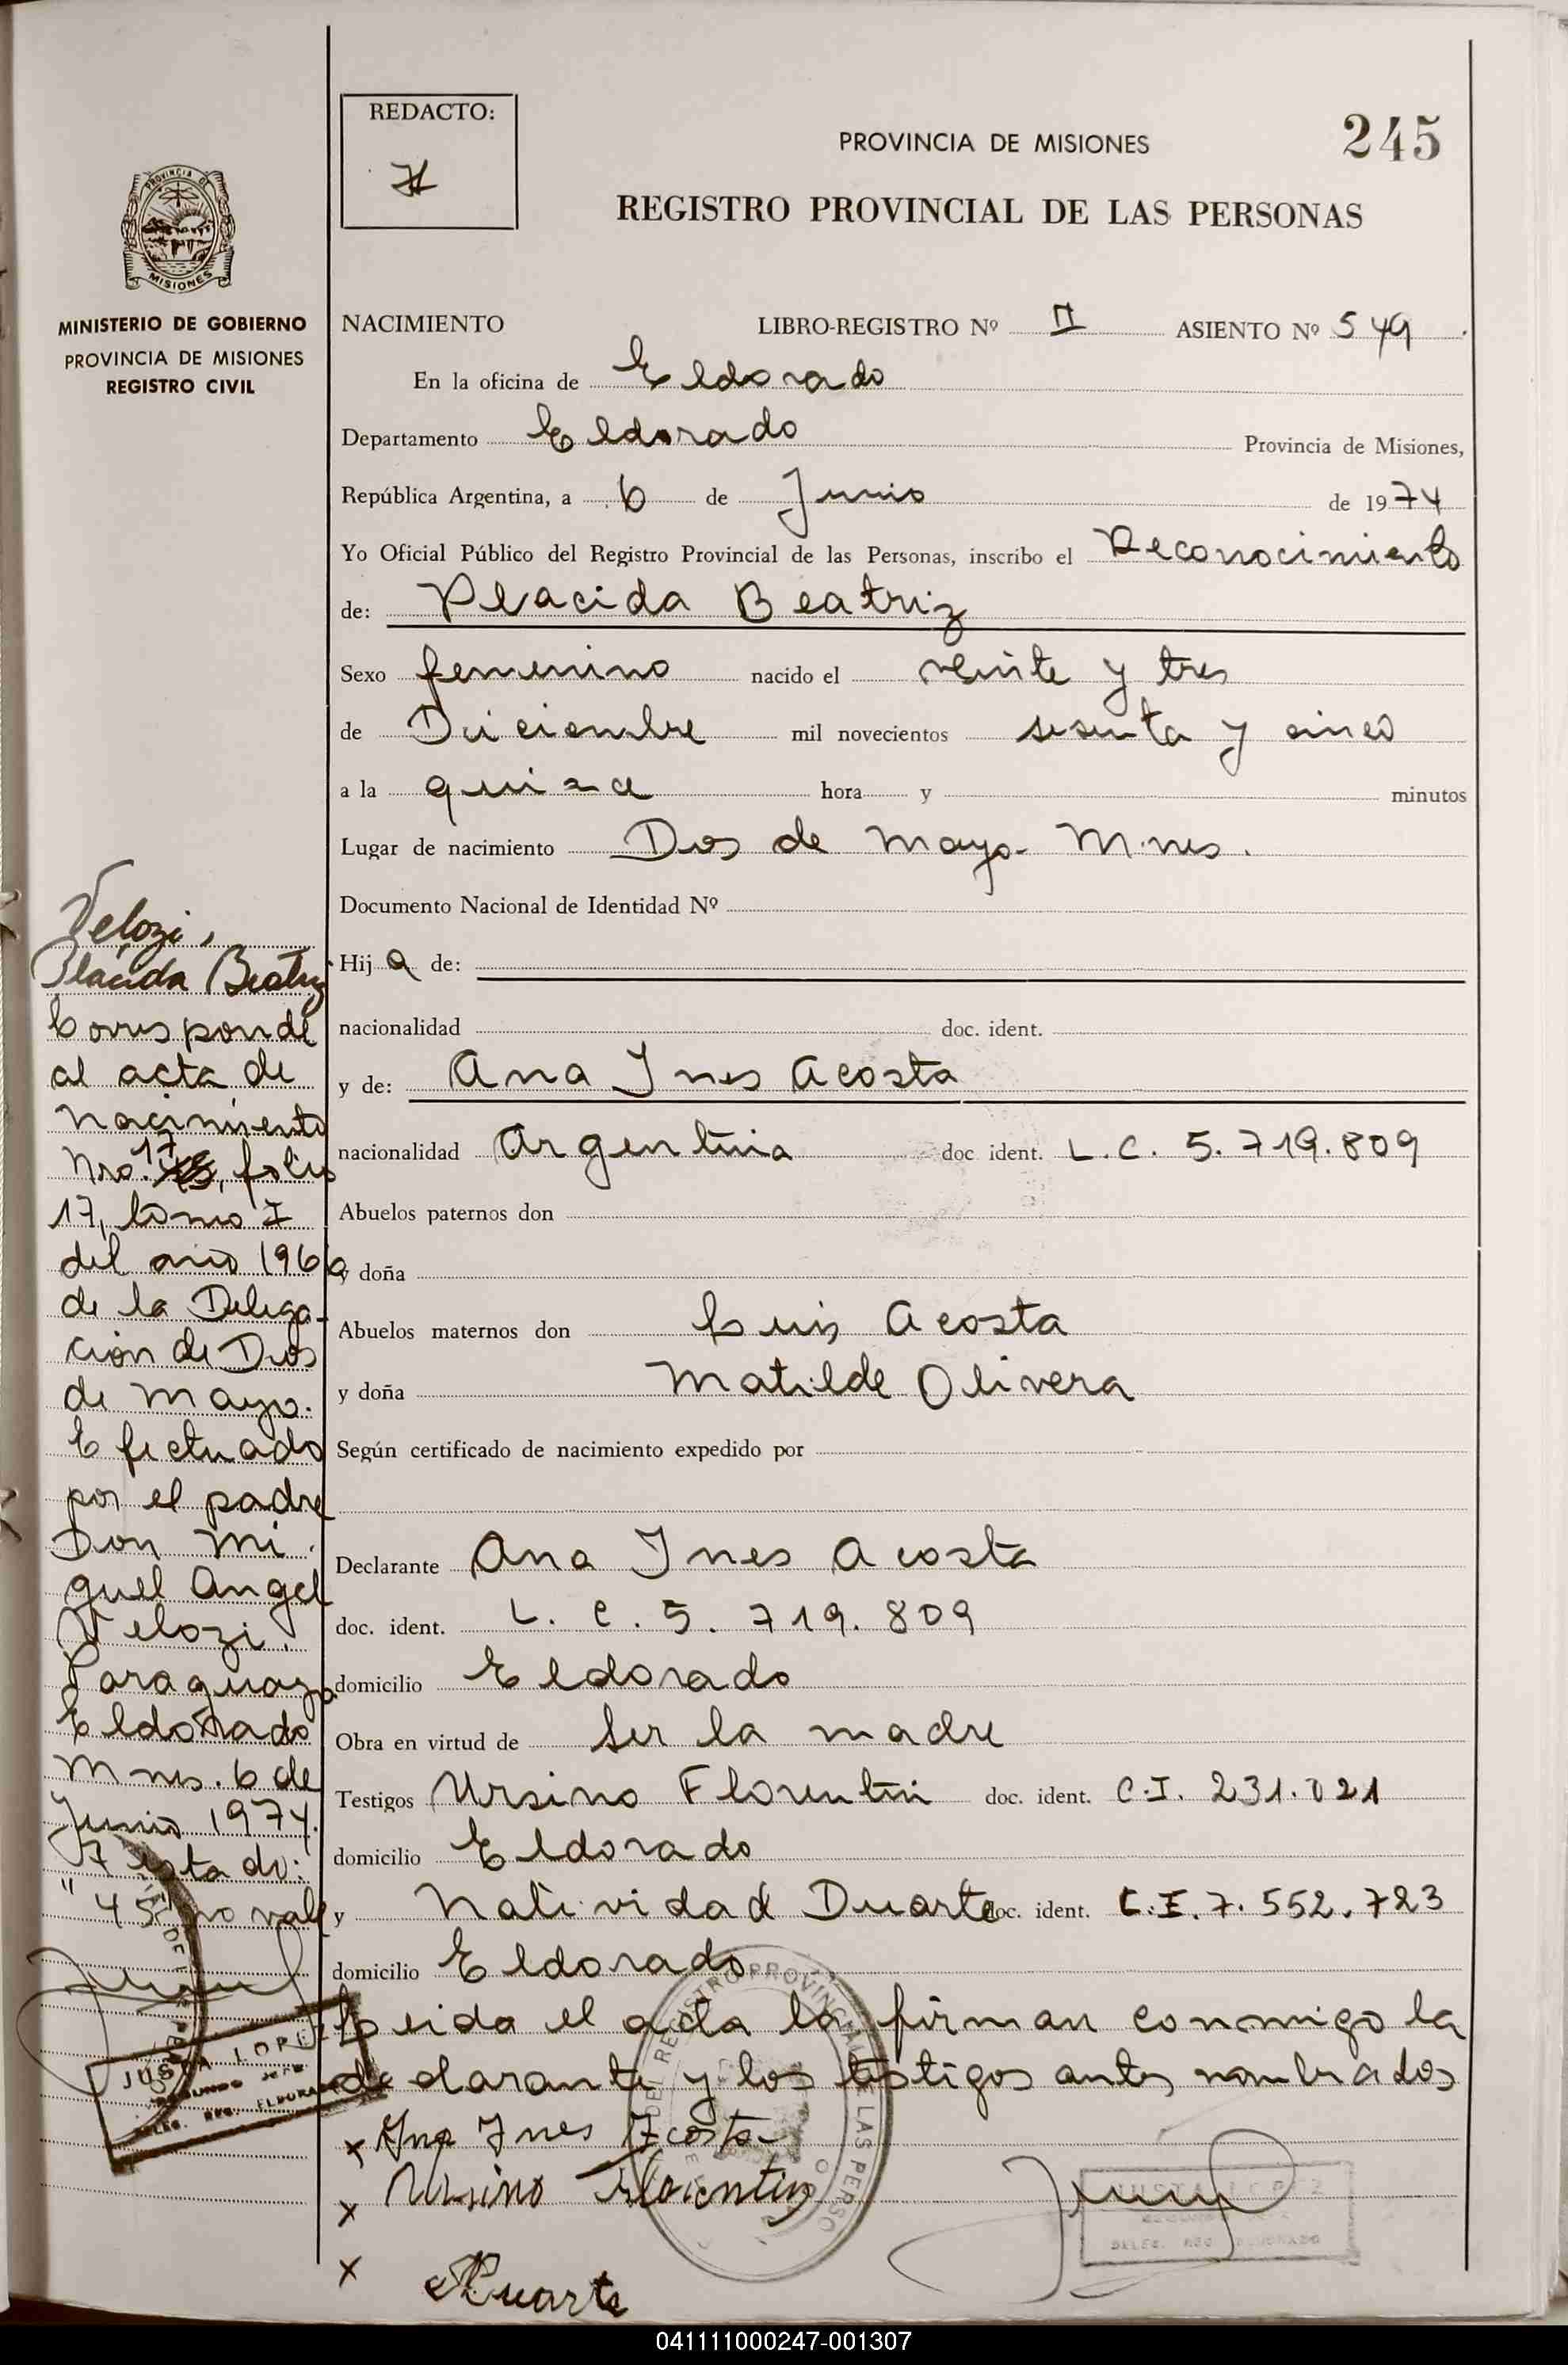 REDACTO:
PROVINCIA DE MISIONES
245
REGISTRO PROVINCIAL DE LAS PERSONAS
PROVINCIA DE
MISIONES
MINISTERIO DE GOBIERNO
PROVINCIA DE MISIONES
REGISTRO CIVIL
NACIMIENTO LIBRO-REGISTRO Nº II ASIENTO Nº 549
En la oficina de Eldorado
Departamento Eldorado Provincia de Misiones,
República Argentina, a 6 de Junio de 1974
Yo Oficial Público del Registro Provincial de las Personas, inscribo el Reconocimiento
de: Placida Beatriz
Sexo femenino nacido el veinte y tres
de Diciembre mil novecientos sesenta y cinco
a la quince hora y minutos
Lugar de nacimiento Dos de Mayo- Mnes.
Documento Nacional de Identidad Nº
Hij a de:
nacionalidad doc. ident.
y de: Ana Ines Acosta
nacionalidad Argentina doc. ident. L.C. 5.719.809
Abuelos paternos don
y doña
Abuelos maternos don Luis Acosta
y doña Matilde Olivera
Según certificado de nacimiento expedido por
Declarante Ana Ines Acosta
doc. ident. L.C. 5.719.809
domicilio Eldorado
Obra en virtud de ser la madre
Testigos Ursino Florentin doc. ident. C.I. 231.021
domicilio Eldorado
y Natividad Duarte doc. ident. C.I. 7.552.723
domicilio Eldorado
Leida el acta la firman conmigo la
declarante y los testigos antes nombrados
x Ana Ines Acosta
x Ursino Florentin
x Duarte
Velozi,
Placida Beatriz
Corresponde
al acta de
nacimiento
Nro. 17, folio
17, tomo I
del año 1966
de la Delega-
ción de Dos
de Mayo.
Efectuado
por el padre
Don Mi
guel Angel
Velozi.
Paraguayo
Eldorado
Mnes. 6 de
Junio 1974.
Testado:
"45" no vale
JUSTA LOPEZ
SEGUNDO JEFE
DELEG. REG. ELDORADO
DEL REGISTRO PROVINCIAL DE LAS PERSO
JUSTA LOPEZ
DELEG. REG. ELDORADO
041111000247-001307